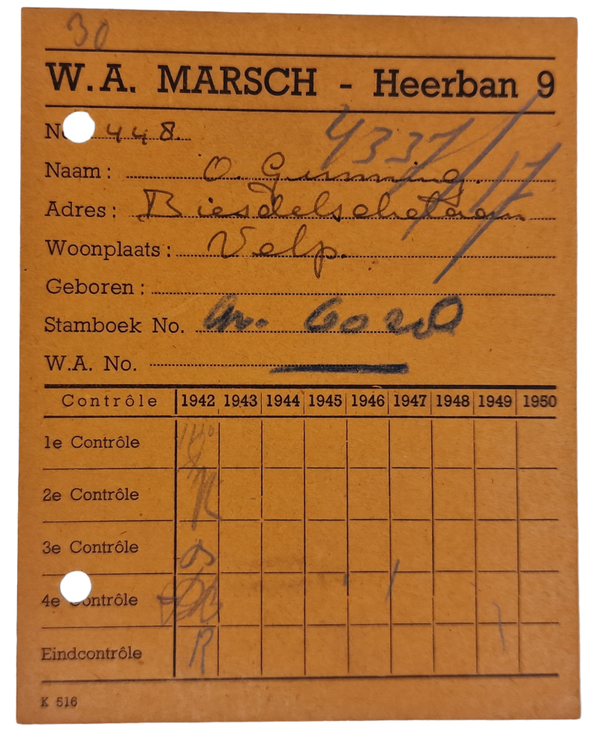 30
W.A. MARSCH - Heerban 9
No 448.
4337/17
Naam: O. Gunning.
Adres:
Woonplaats: Velp.
Geboren:
Stamboek No. 6020
W.A. No.
Contrôle 1942 1943 1944 1945 1946 1947 1948 1949 1950
1e Contrôle
2e Contrôle
3e Contrôle
4e Contrôle
Eindcontrôle R
K 516